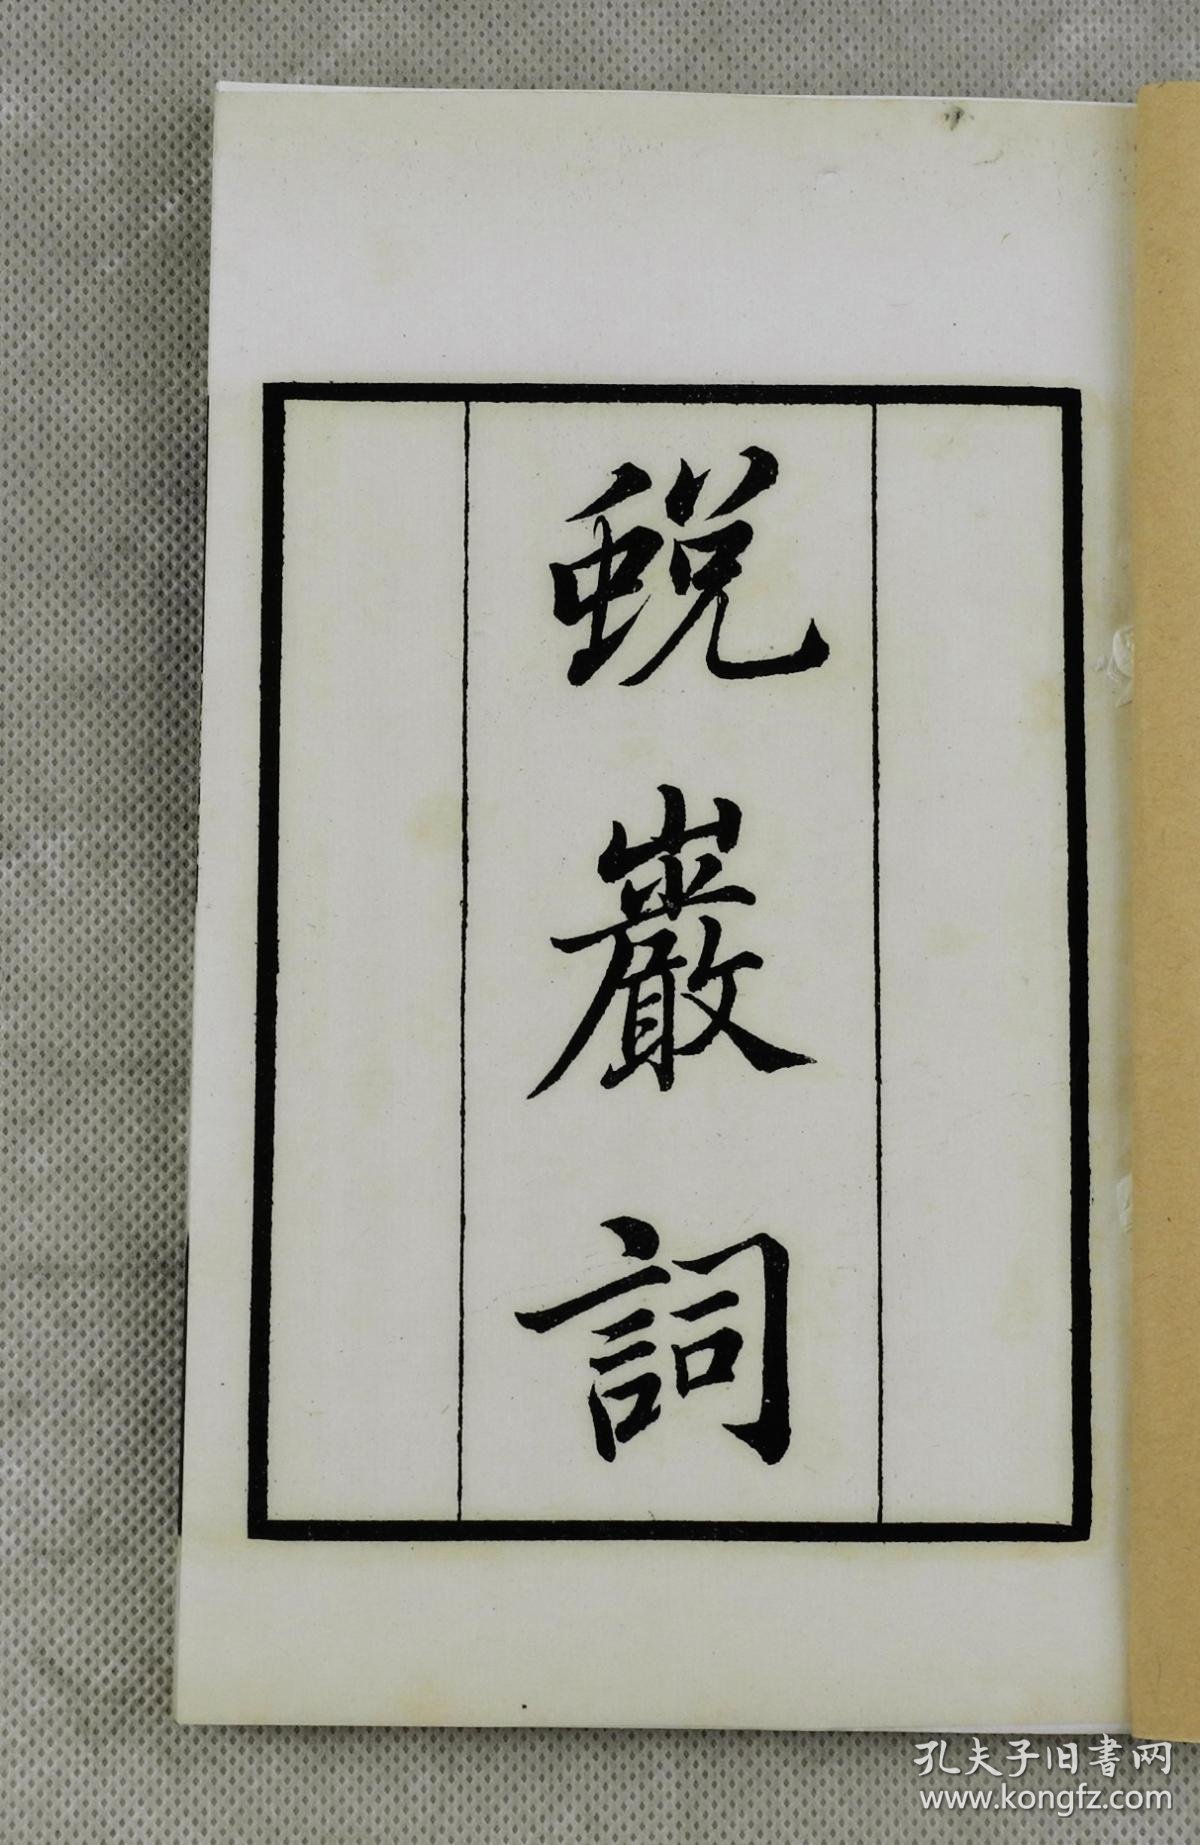 蛻巖詞
孔夫子旧書网
www.kongfz.com